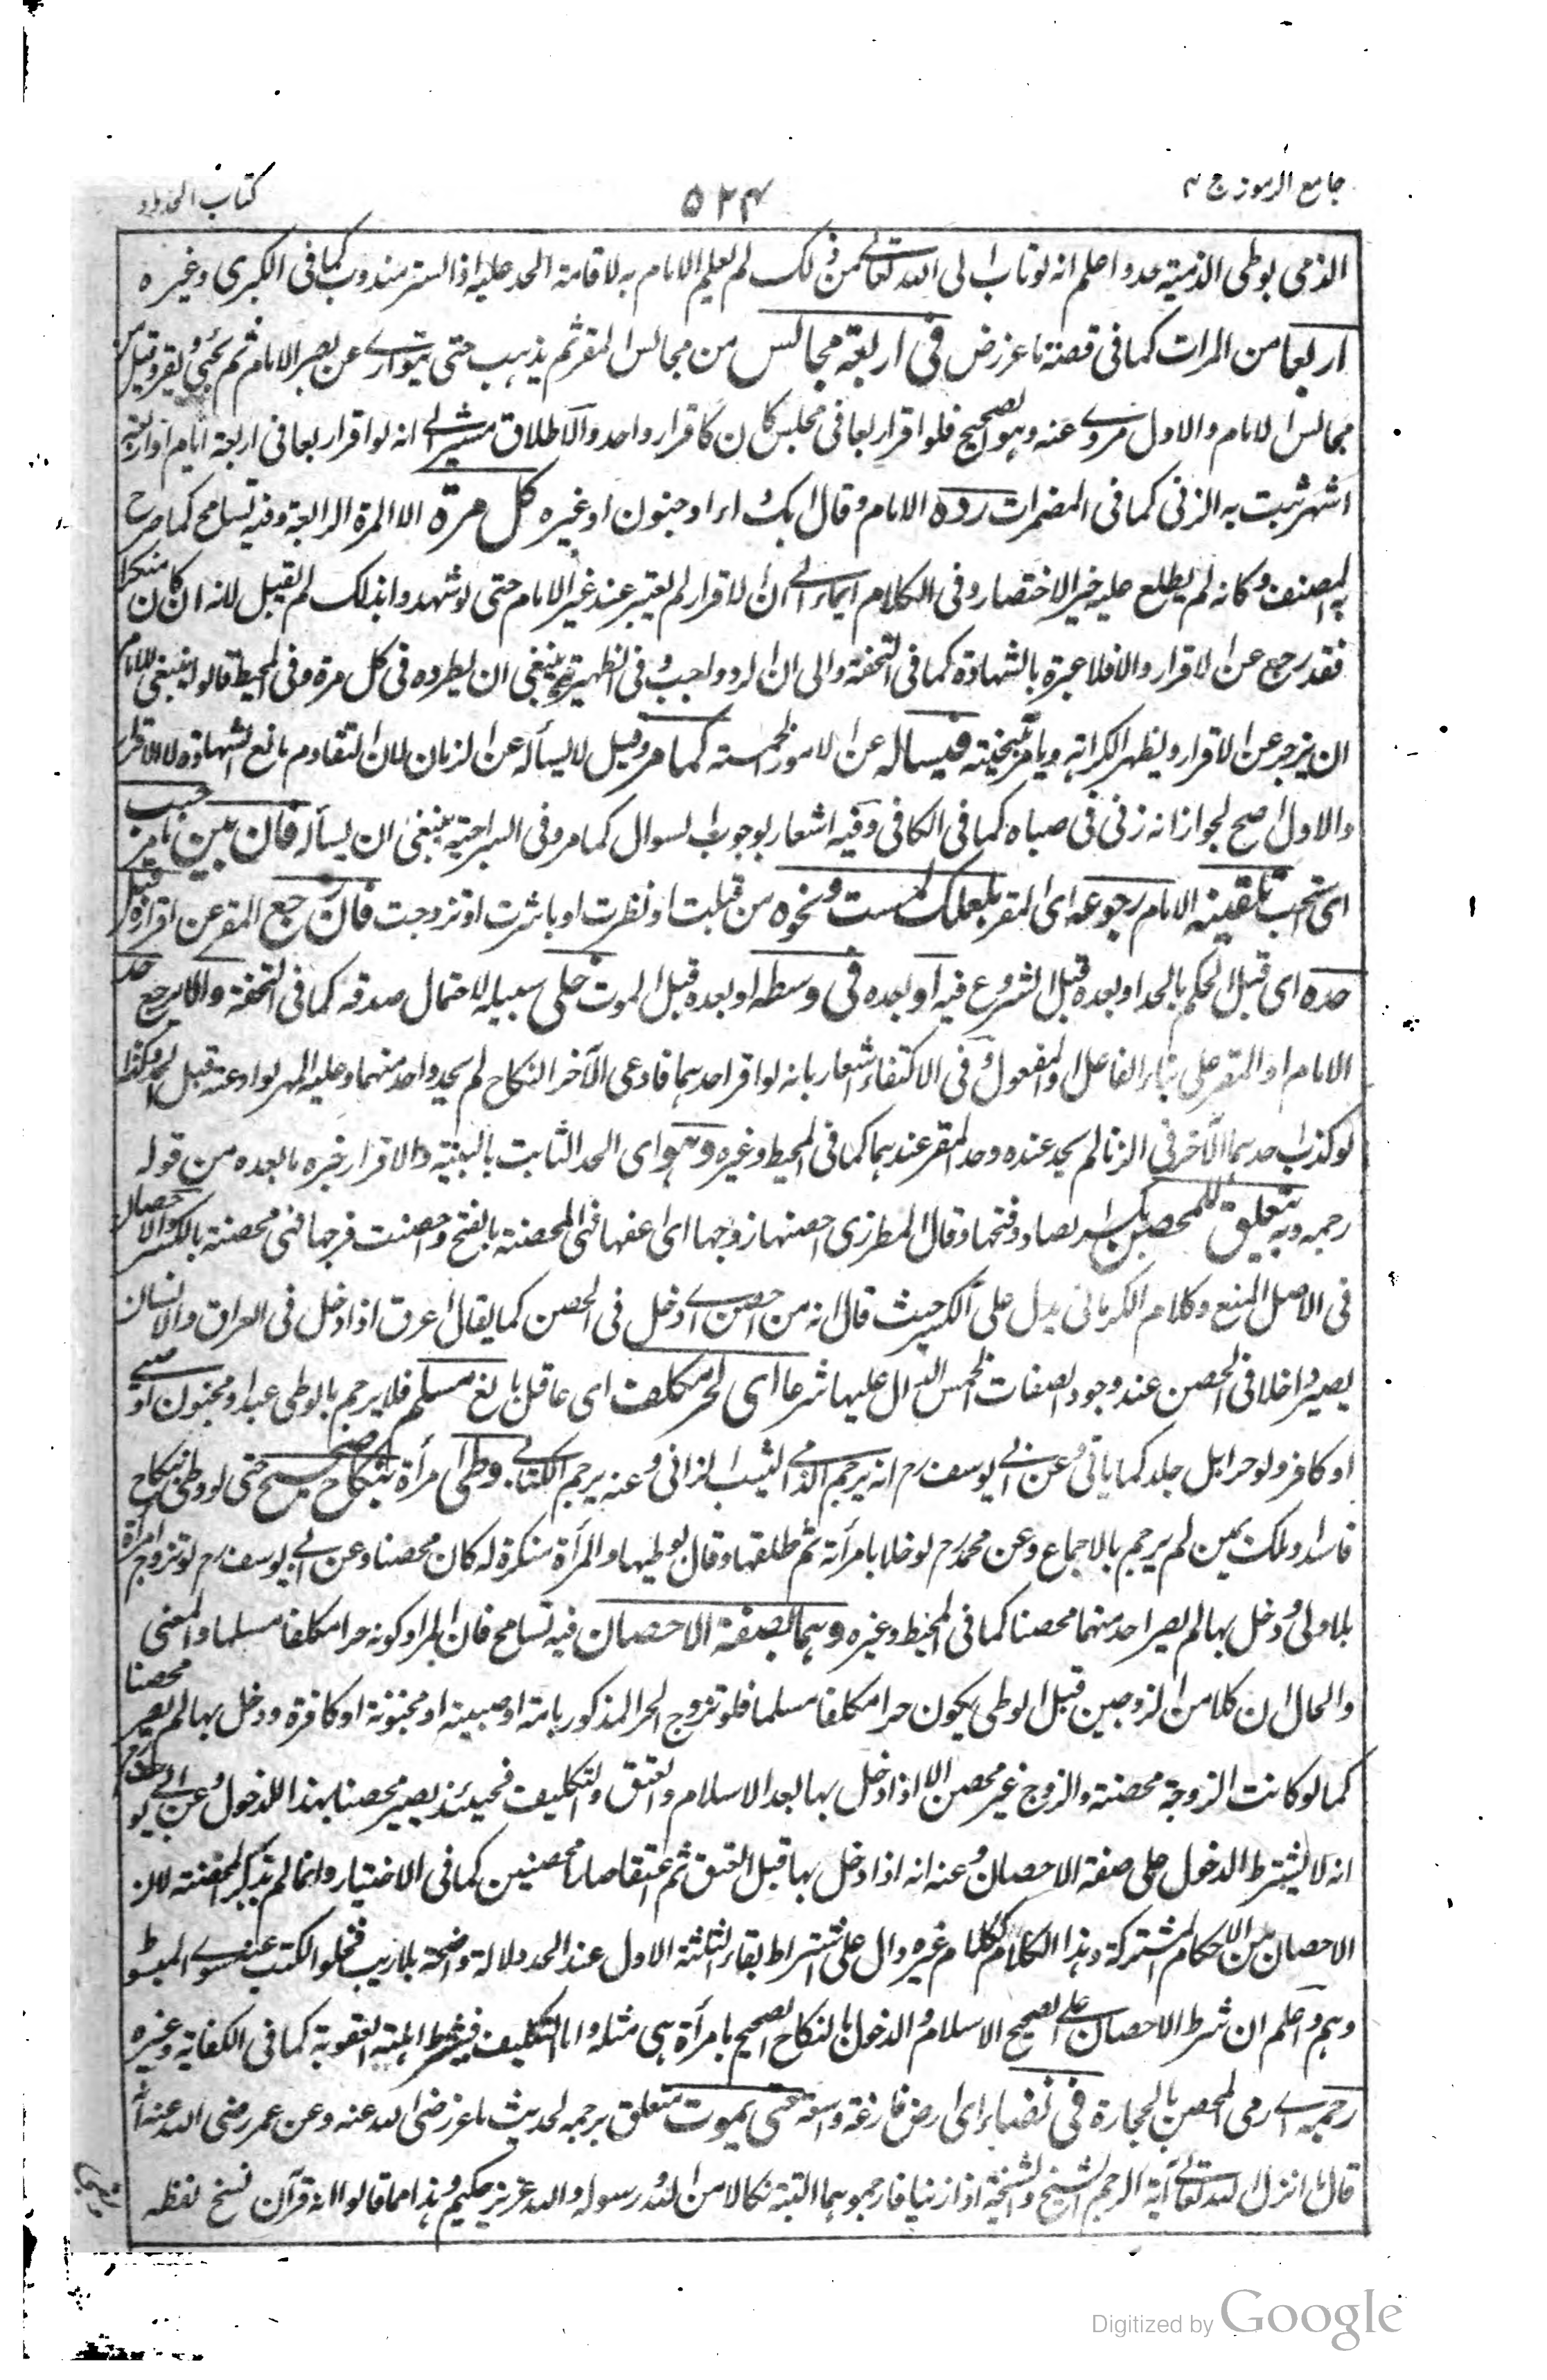 جامع الرموز ج ٢
٥٢٤
كتاب الحدود
الذمي بوطى الذمية حد واعلم انه لو تاب الى الله تعالى من ذلك لم يعلم الامام به لاقامة الحد عليه اذ الستر مندوب كما في الكبرى وغيره
اربعا من المرات كما في قصة ماعز رض في اربعة مجالس من مجالس المقر ثم يذهب حتى يتوارى عن بصر الامام ثم يجئ ويقر وقيل من
مجالس الامام والاول مروى عنه وهو الصحيح فلو اقر اربعا في مجلس كان كاقرار واحد والاطلاق مشير الى انه لو اقر اربعا في اربعة ايام او اربعة
اشهر ثبت به الزنى كما في المضمرات رده الامام وقال ابك داء او جنون او غيره كل مرة الا المرة الرابعة وفيه تسامح كما صرح
به المصنف وكانه لم يطلع عليه خير الاختصار وفي الكلام ايماء الى ان الاقرار لم يعتبر عند غير الامام حتى لو شهدوا بذلك لم يقبل لانه ان كان منكرا
فقد رجع عن الاقرار والا فلا عبرة بالشهادة كما في التحفة والى ان الرد واجب وفي الظهيرية ينبغي ان يطرده في كل مرة وفي المحيط قالوا ينبغي للامام
ان يزجر عن الاقرار ويظهر الكراهة ويامر بتنحيته فيساله عن الامور الخمسة كما مر وقيل لا يسأله عن الزمان لان التقادم مانع الشهادة لا الاقرار
والاول اصح لجواز انه زنى في صباه كما في الكافي وفيه اشعار بوجوب السوال كما مر وفي السراجية ينبغي ان يسأله فان بين ما مر حسب
اى استحب تلقينه الامام رجوعه اى المقر بلعلك لمست ونحوه من قبلت او نظرت او باشرت او تزوجت فان رجع المقر عن اقراره قبل
حده اى قبل الحكم بالحد او بعده قبل الشروع فيه او بعده في وسطه او بعده قبل الموت خلى سبيله لاحتمال صدقه كما في التحفة والا يرجع حد
الامام او المقر على بناء الفاعل او المفعول وفي الاكتفاء اشعار بانه لو اقر احدهما فادعى الآخر النكاح لم يحد واحد منهما وعليه المهر لو ادعته قبل الحد وكذا
لو كذب احدهما الآخر في الزنا لم يحد عنده وحد المقر عندهما كما في المحيط وغيره وهو اى الحد الثابت بالبينة والاقرار خبره ما بعده من قوله
رجمه وبه يتعلق للمحصن بكسر الصاد وفتحها وقال المطرزى احصنها زوجها اى اعفها فهى المحصنة بالفتح واحصنت فرجها فهى محصنة بالكسر والاحصان
في الاصل المنع وكلام الكرماني يدل على الكسر حيث قال انه من احصن اى دخل في الحصن كما يقال اعرق اذا دخل في العراق والانسان
يصير داخلا في الحصن عند وجود الصفات الخمس الدال عليها شرعا اى لحر مكلف اى عاقل بالغ مسلم فلا يرجم بالوطى عبد او مجنون او صبى
او كافر ولو حرا بل جلد كما ياتى وعن ابى يوسف رح انه يرجم الذمى الثيب الزانى وعنه يرجم الكتابى وطى امرأة بنكاح صحيح حتى لو وطى بنكاح
فاسد او ملك يمين لم يرجم بالاجماع وعن محمد رح لو خلا بامرأته ثم طلقها وقال بوطيها والمرأة منكرة له كان محصنا وعن ابى يوسف رح لو تزوج امرأة
بلا ولى ودخل بها لم يصر احد منهما محصنا كما في المحيط وغيره وهما بصفة الاحصان فيه تسامح فان المراد كونه حرا مكلفا مسلما والمعنى
والحال ان كلا من الزوجين قبل الوطى يكون حرا مكلفا مسلما فلو تزوج الحر المذكور بامة او صبية او مجنونة او كافرة ودخل بها لم يصر محصنا
كما لو كانت الزوجة محصنة والزوج غير محصن الا اذا دخل بها بعد الاسلام والعتق والتكليف فحينئذ يصير محصنا بهذا الدخول وعن ابى يوسف رح
انه لا يشترط الدخول على صفة الاحصان وعنه انه اذا دخل بها قبل العتق ثم اعتقا صارا محصنين كما في الاختيار وانما لم يذكر المحصنة لان
الاحصان من الاحكام المشتركة وهذا الكلام ككلام غيره دال على اشتراط بقاء الثلثة الاول عند الحد دلالة واضحة بلا ريب فخلو الكتب عنه سوى المبسوط
وهم واعلم ان شرط الاحصان على الصحيح الاسلام والدخول بالنكاح الصحيح بامرأة هى مثله واما التكليف فيشترط اهلية العقوبة كما في الكفاية وغيره
رجمه اى رمى المحصن بالحجارة في فضاء اى ارض فارغة واسعة حتى يموت متعلق برجمه لحديث ماعز رضى الله عنه وعن عمر رضى الله عنه انه
قال انزل الله تعالى آية الرجم الشيخ والشيخة اذا زنيا فارجموهما البتة نكالا من الله ورسوله والله عزيز حكيم وهذا مما قالوا انه قرآن نسخ لفظه
Digitized by Google